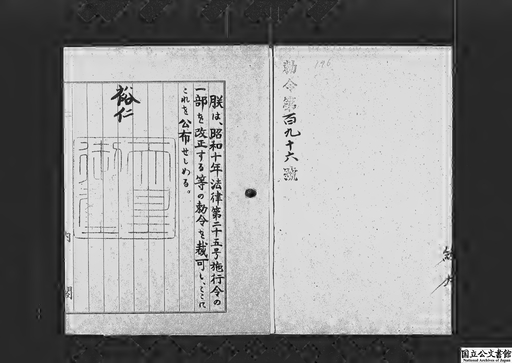 勅令第百九十六號
196
朕は、昭和十年法律第二十五号施行令の
一部を改正する等の勅令を裁可し、ここに
これを公布せしめる。
裕仁
天皇御璽
内閣
国立公文書館
National Archives of Japan